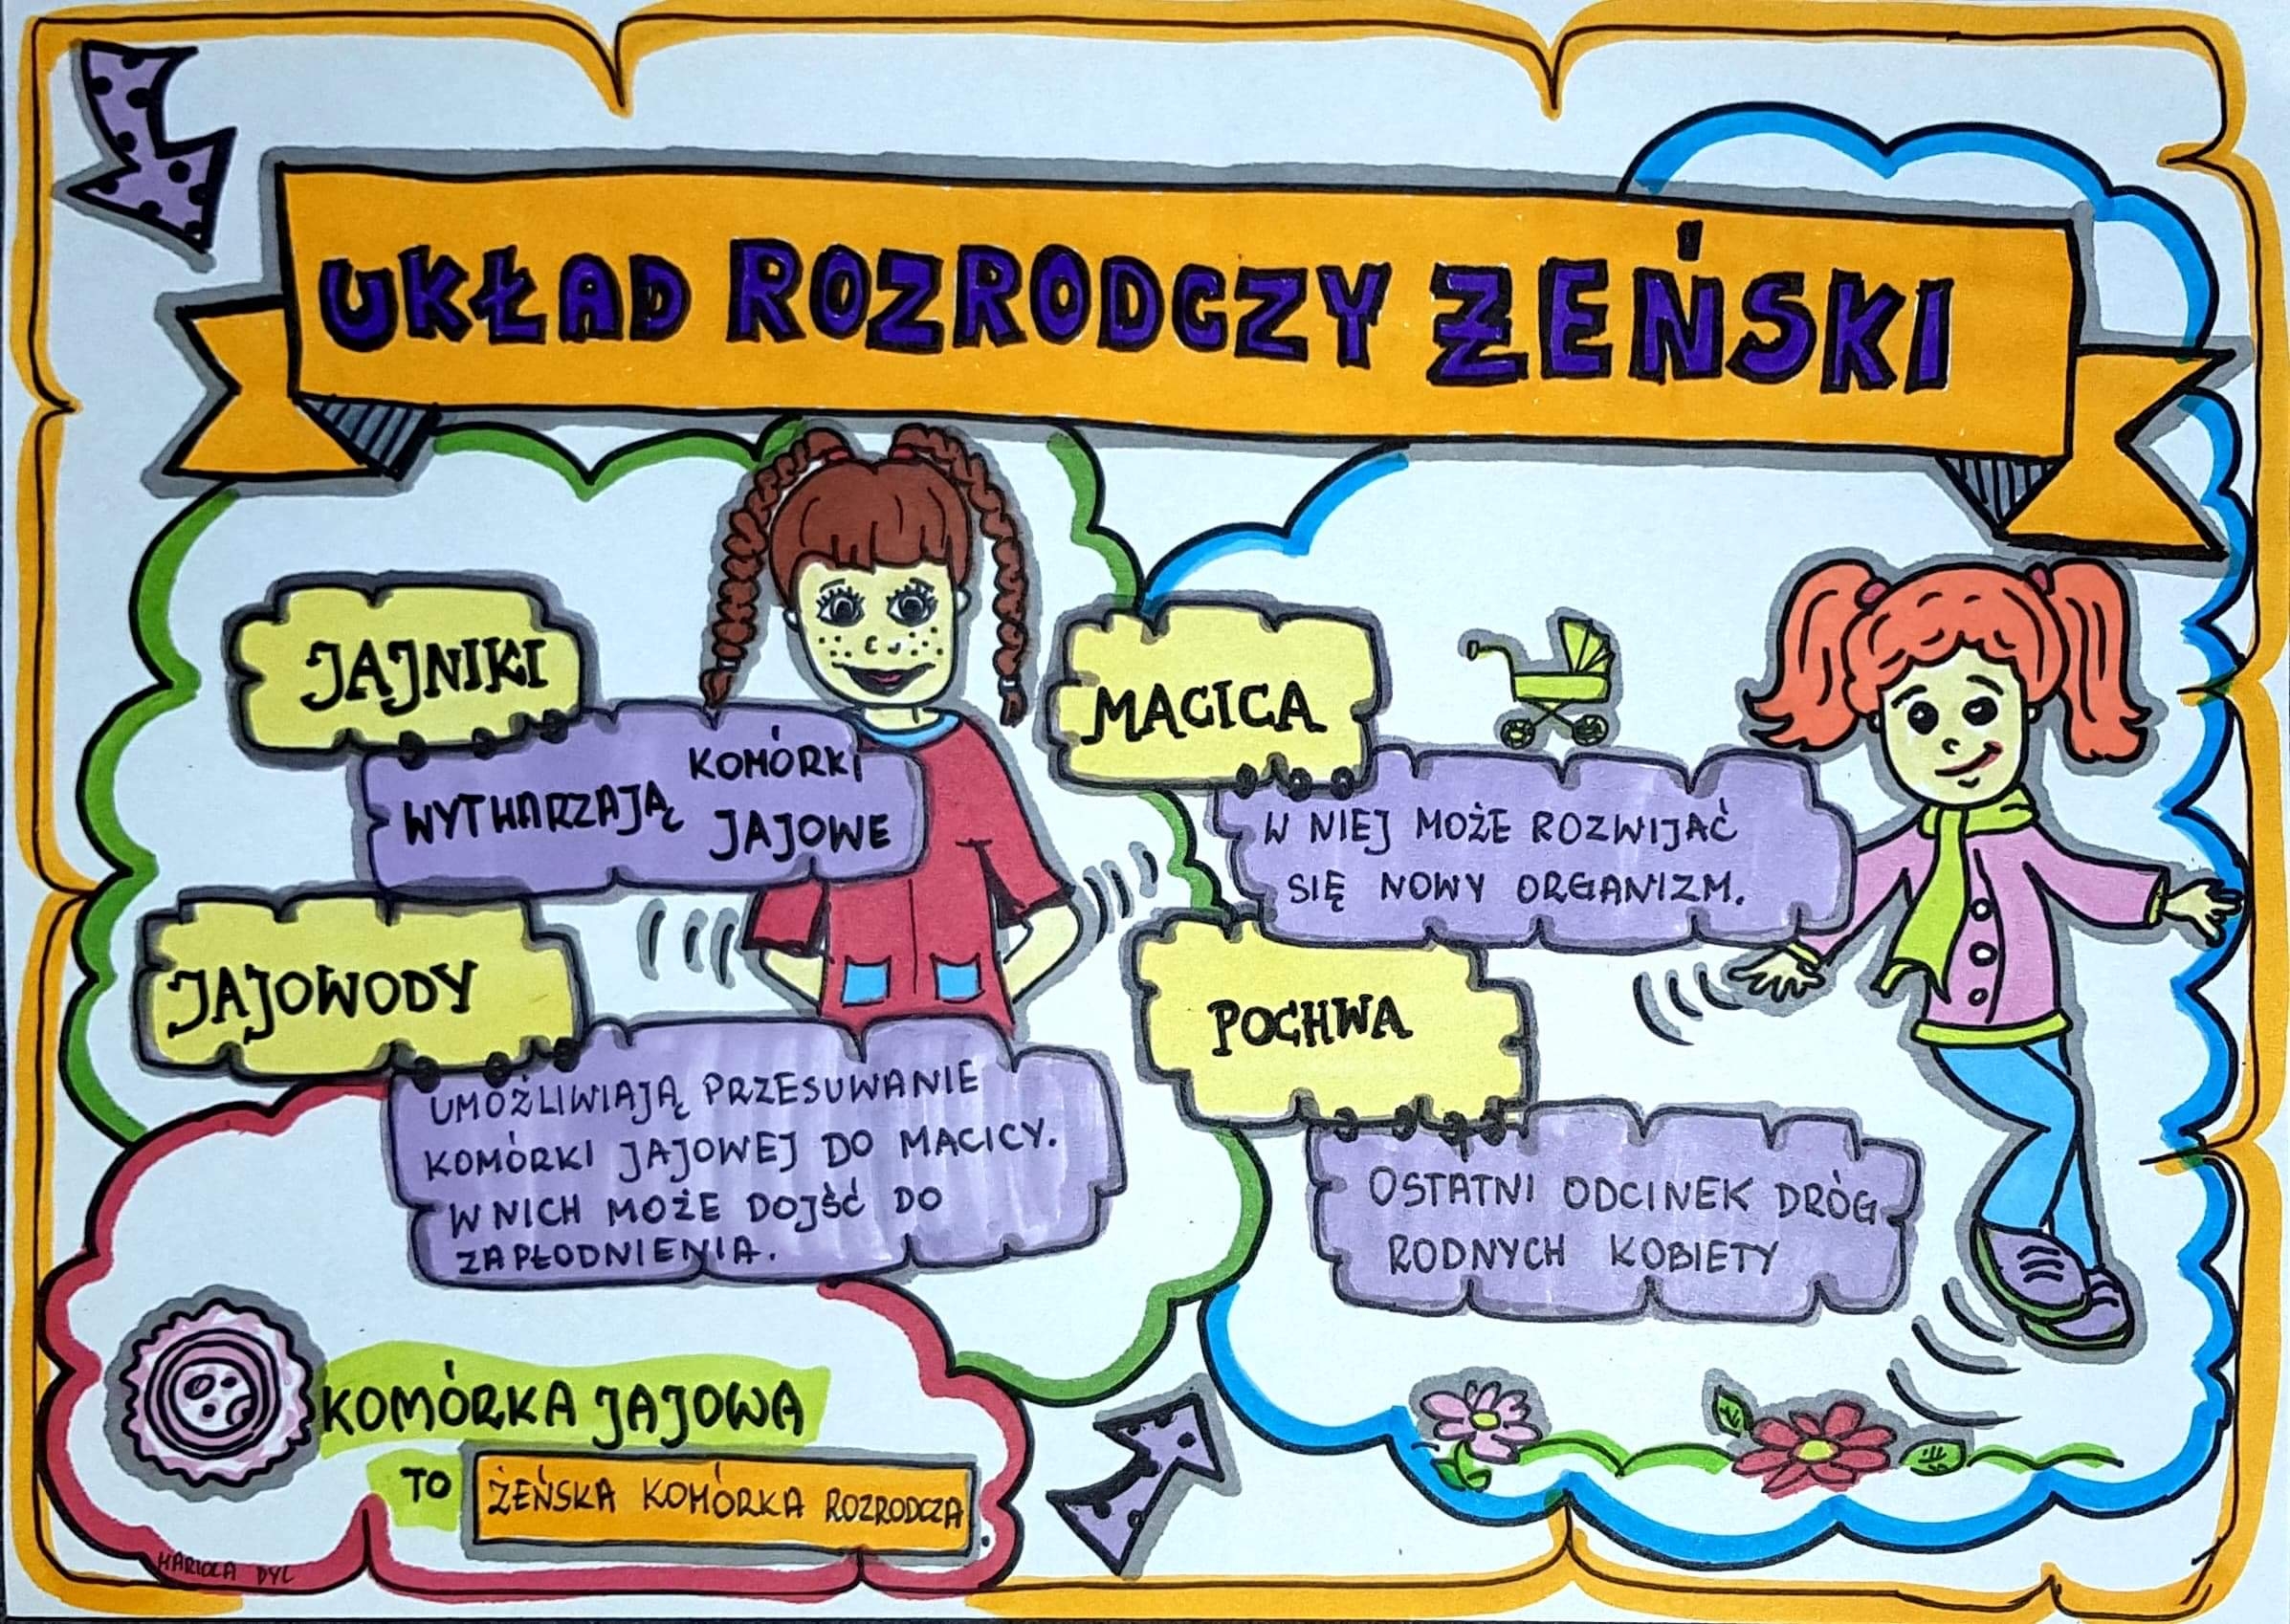 UKŁAD ROZRODCZY ŻEŃSKI
JAJNIKI
WYTWARZAJĄ KOMÓRKI
JAJOWE
JAJOWODY
UMOŻLIWIAJĄ PRZESUWANIE
KOMÓRKI JAJOWEJ DO MACICY.
W NICH MOŻE DOJŚĆ DO
ZAPŁODNIENIA.
MACICA
W NIEJ MOŻE ROZWIJAĆ
SIĘ NOWY ORGANIZM.
POCHWA
OSTATNI ODCINEK DRÓG
RODNYCH KOBIETY
KOMÓRKA JAJOWA
TO ŻEŃSKA KOMÓRKA ROZRODCZA
MARIOLA DYL